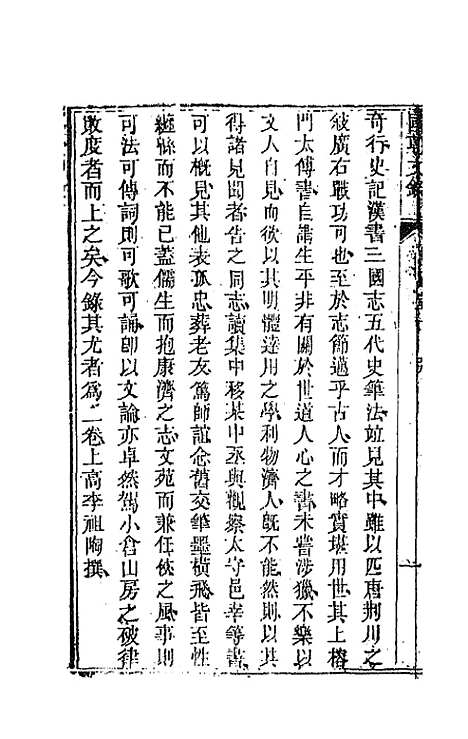 國朝文錄
奇行史記漢書三國志五代史筆法竝見其中雖以匹唐荆川之
敘廣右戰功可也至於志節過乎古人而才略實堪用世其上椿
門太傅書自謂生平非有關於世道人心之書未嘗涉獵不樂以
文人自見而欲以其明體達用之學利物濟人既不能然則以其
得諸見聞者告之同志讀集中移某中丞與觀察太守邑宰等書
可以概見其他表孤忠葬老友篤師誼念舊交筆墨橫飛皆至性
纏緜而不能已蓋儒生而抱康濟之志文苑而兼任俠之風事則
可法可傳詞則可歌可誦卽以文論亦卓然駕小倉山房之破律
敗度者而上之矣今錄其尤者爲二卷上高李祖陶撰